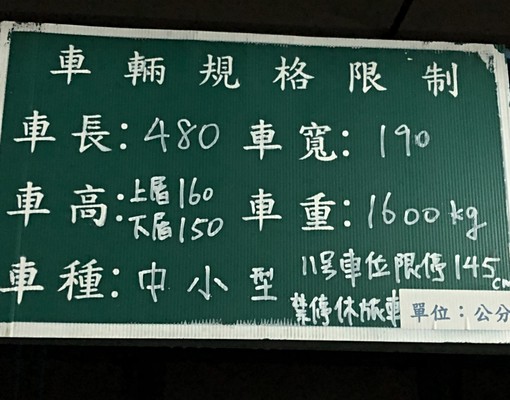 車輛規格限制
車長:480 車寬:190
車高:上層160 下層150 車重:1600kg
車種:中小型 11号車位限停145cm
禁停休旅車
單位:公分